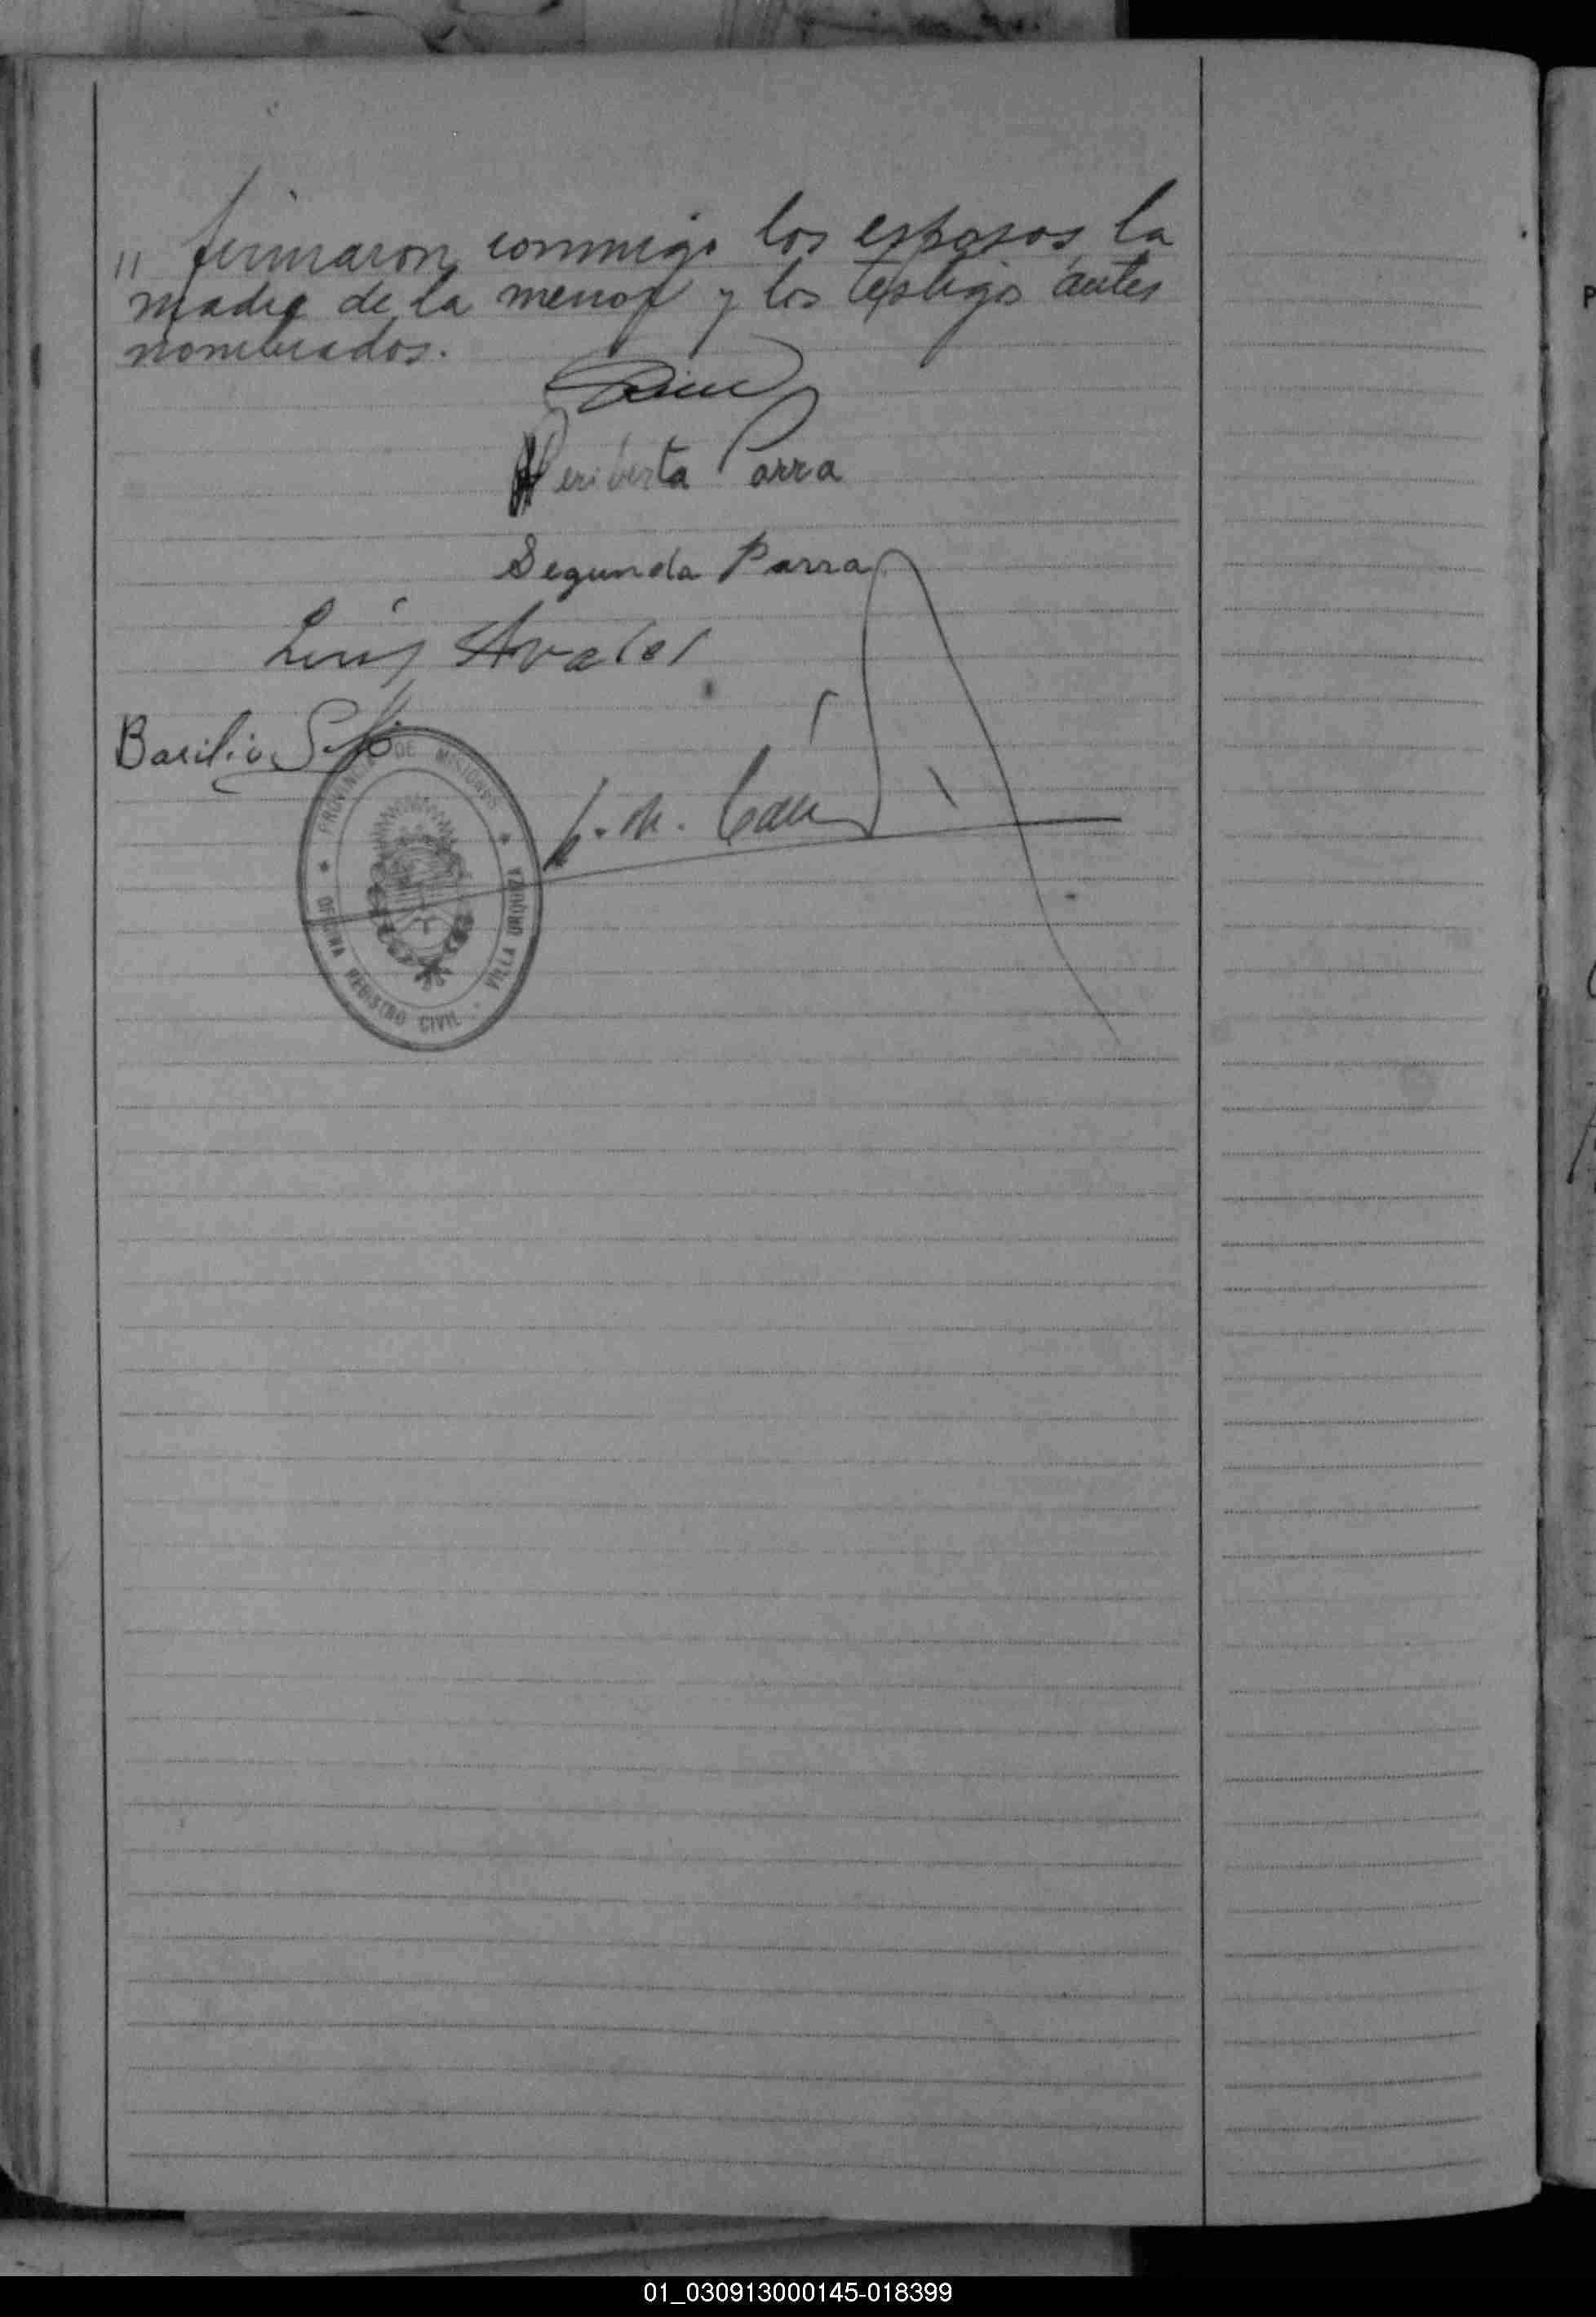 " firmaron conmigo los esposos, la
madre de la menor y los testigos antes
nombrados.
Heriberta Parra
Segunda Parra
Luis Avalos
Basilio
PROVINCIA DE MISIONES
OFICINA REGISTRO CIVIL - VILLA URQUIZA
01_030913000145-018399